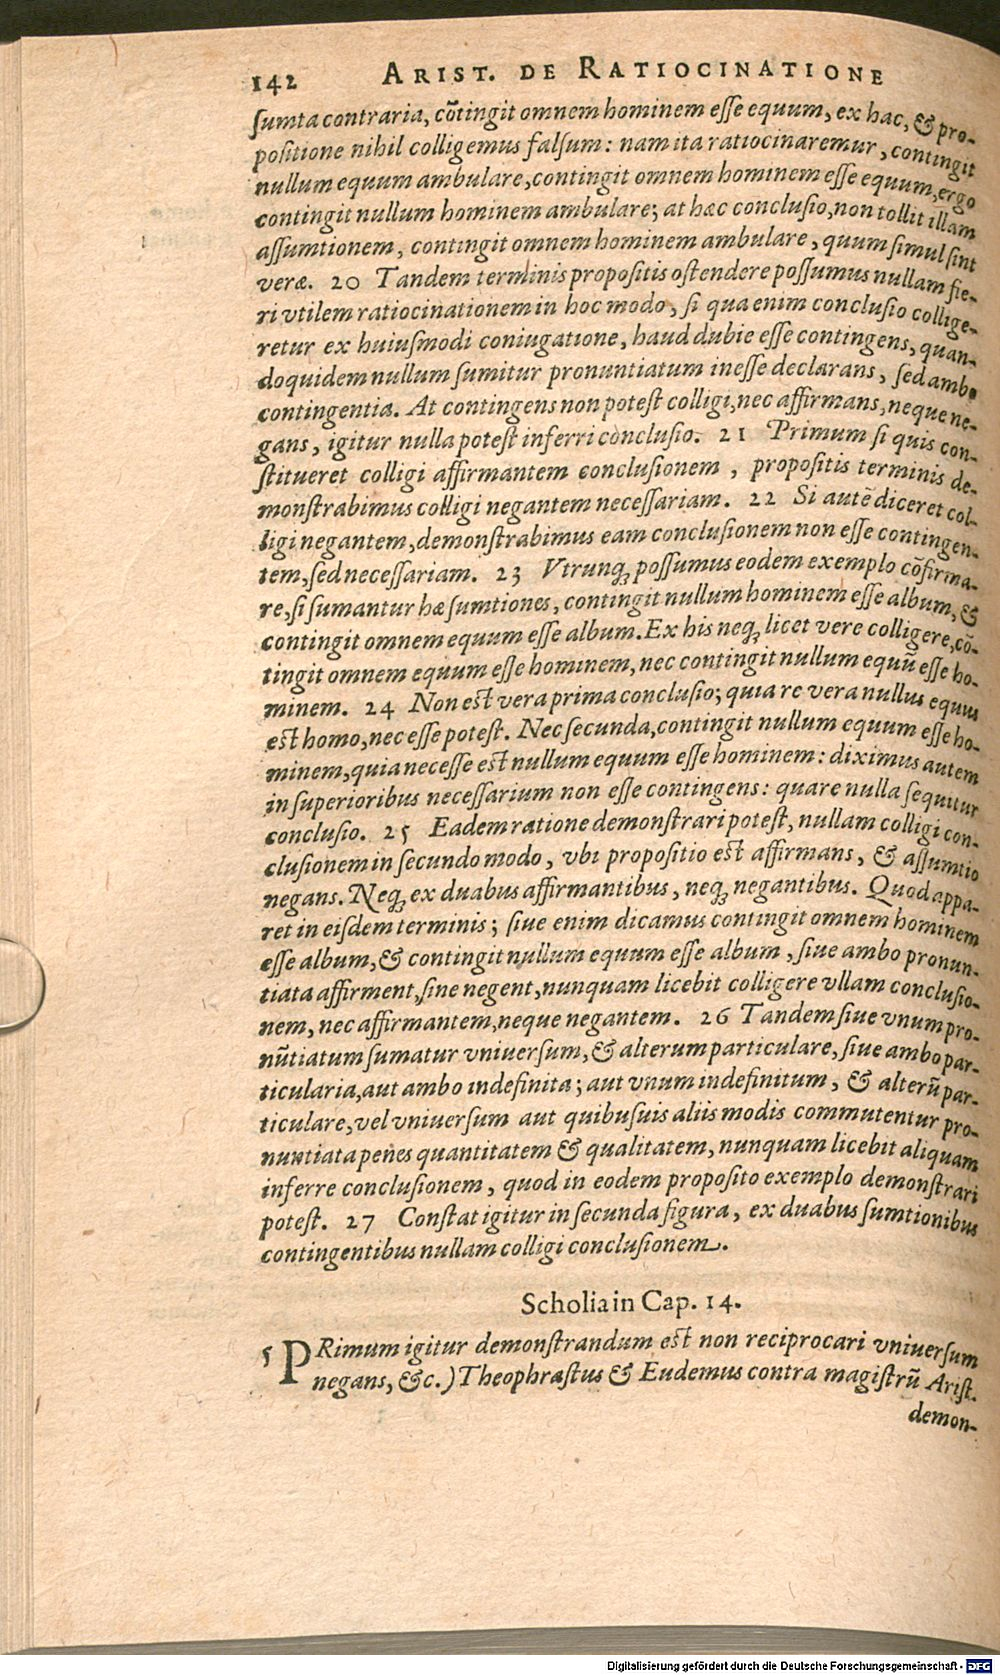 142 ARIST. DE RATIOCINATIONE
sumta contraria, cõtingit omnem hominem esse equum, ex hac, & pro-
positione nihil colligemus falsum: nam ita ratiocinaremur, contingit
nullum equum ambulare, contingit omnem hominem esse equum, ergo
contingit nullum hominem ambulare; at hæc conclusio, non tollit illam
assumtionem, contingit omnem hominem ambulare, quum simul sint
veræ. 20 Tandem terminis propositis ostendere possumus nullam fie-
ri vtilem ratiocinationem in hoc modo, si qua enim conclusio collige-
retur ex huiusmodi coniugatione, haud dubie esse contingens, quan-
doquidem nullum sumitur pronuntiatum inesse declarans, sed ambo
contingentia. At contingens non potest colligi, nec affirmans, neque ne-
gans, igitur nulla potest inferri conclusio. 21 Primum si quis con-
stitueret colligi affirmantem conclusionem, propositis terminis de-
monstrabimus colligi negantem necessariam. 22 Si autē diceret col-
ligi negantem, demonstrabimus eam conclusionem non esse contingen-
tem, sed necessariam. 23 Vtrunq; possumus eodem exemplo cõfirma-
re, si sumantur hæ sumtiones, contingit nullum hominem esse album, &
contingit omnem equum esse album. Ex his neq; licet vere colligere, cõ-
tingit omnem equum esse hominem, nec contingit nullum equũ esse ho-
minem. 24 Non est vera prima conclusio; quia re vera nullus equus
est homo, nec esse potest. Nec secunda, contingit nullum equum esse ho-
minem, quia necesse est nullum equum esse hominem: diximus autem
in superioribus necessarium non esse contingens: quare nulla sequitur
conclusio. 25 Eadem ratione demonstrari potest, nullam colligi con-
clusionem in secundo modo, vbi propositio est affirmans, & assumtio
negans. Neq; ex duabus affirmantibus, neq; negantibus. Quod appa-
ret in eisdem terminis; siue enim dicamus contingit omnem hominem
esse album, & contingit nullum equum esse album, siue ambo pronun-
tiata affirment, sine negent, nunquam licebit colligere vllam conclusio-
nem, nec affirmantem, neque negantem. 26 Tandem siue vnum pro-
nũtiatum sumatur vniuersum, & alterum particulare, siue ambo par-
ticularia, aut ambo indefinita; aut vnum indefinitum, & alterũ par-
ticulare, vel vniuersum aut quibusuis aliis modis commutentur pro-
nuntiata penes quantitatem & qualitatem, nunquam licebit aliquam
inferre conclusionem, quod in eodem proposito exemplo demonstrari
potest. 27 Constat igitur in secunda figura, ex duabus sumtionibus
contingentibus nullam colligi conclusionem.
Scholia in Cap. 14.
5 PRimum igitur demonstrandum est non reciprocari vniuersum
negans, &c.) Theophrastus & Eudemus contra magistrũ Arist.
demon-
Digitalisierung gefördert durch die Deutsche Forschungsgemeinschaft - DFG